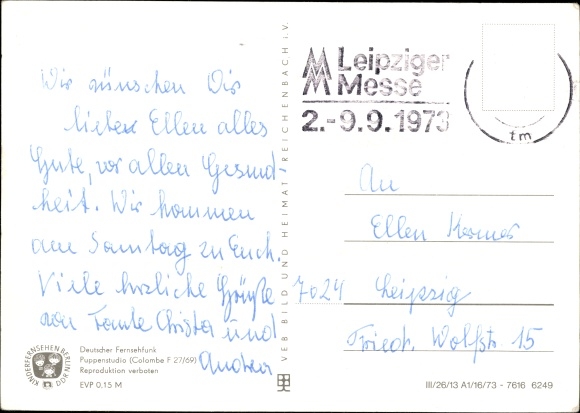 Wir wünschen Dir
liebe Ellen alles
Gute, vor allen Gesund-
heit. Wir kommen
am Samstag zu Euch.
Viele herzliche Grüße
von Tante Christa und
Andrea
KINDERFERNSEHEN BERLIN
DDR
Deutscher Fernsehfunk
Puppenstudio (Colombe F 27/69)
Reproduktion verboten
EVP 0.15 M
VEB BILD UND HEIMAT REICHENBACH i.V.
Leipziger
Messe
2.-9.9.1973
tm
An
Ellen
7024 Leipzig
Friedr. Wolfstr. 15
III/26/13 A1/16/73 - 7616 6249